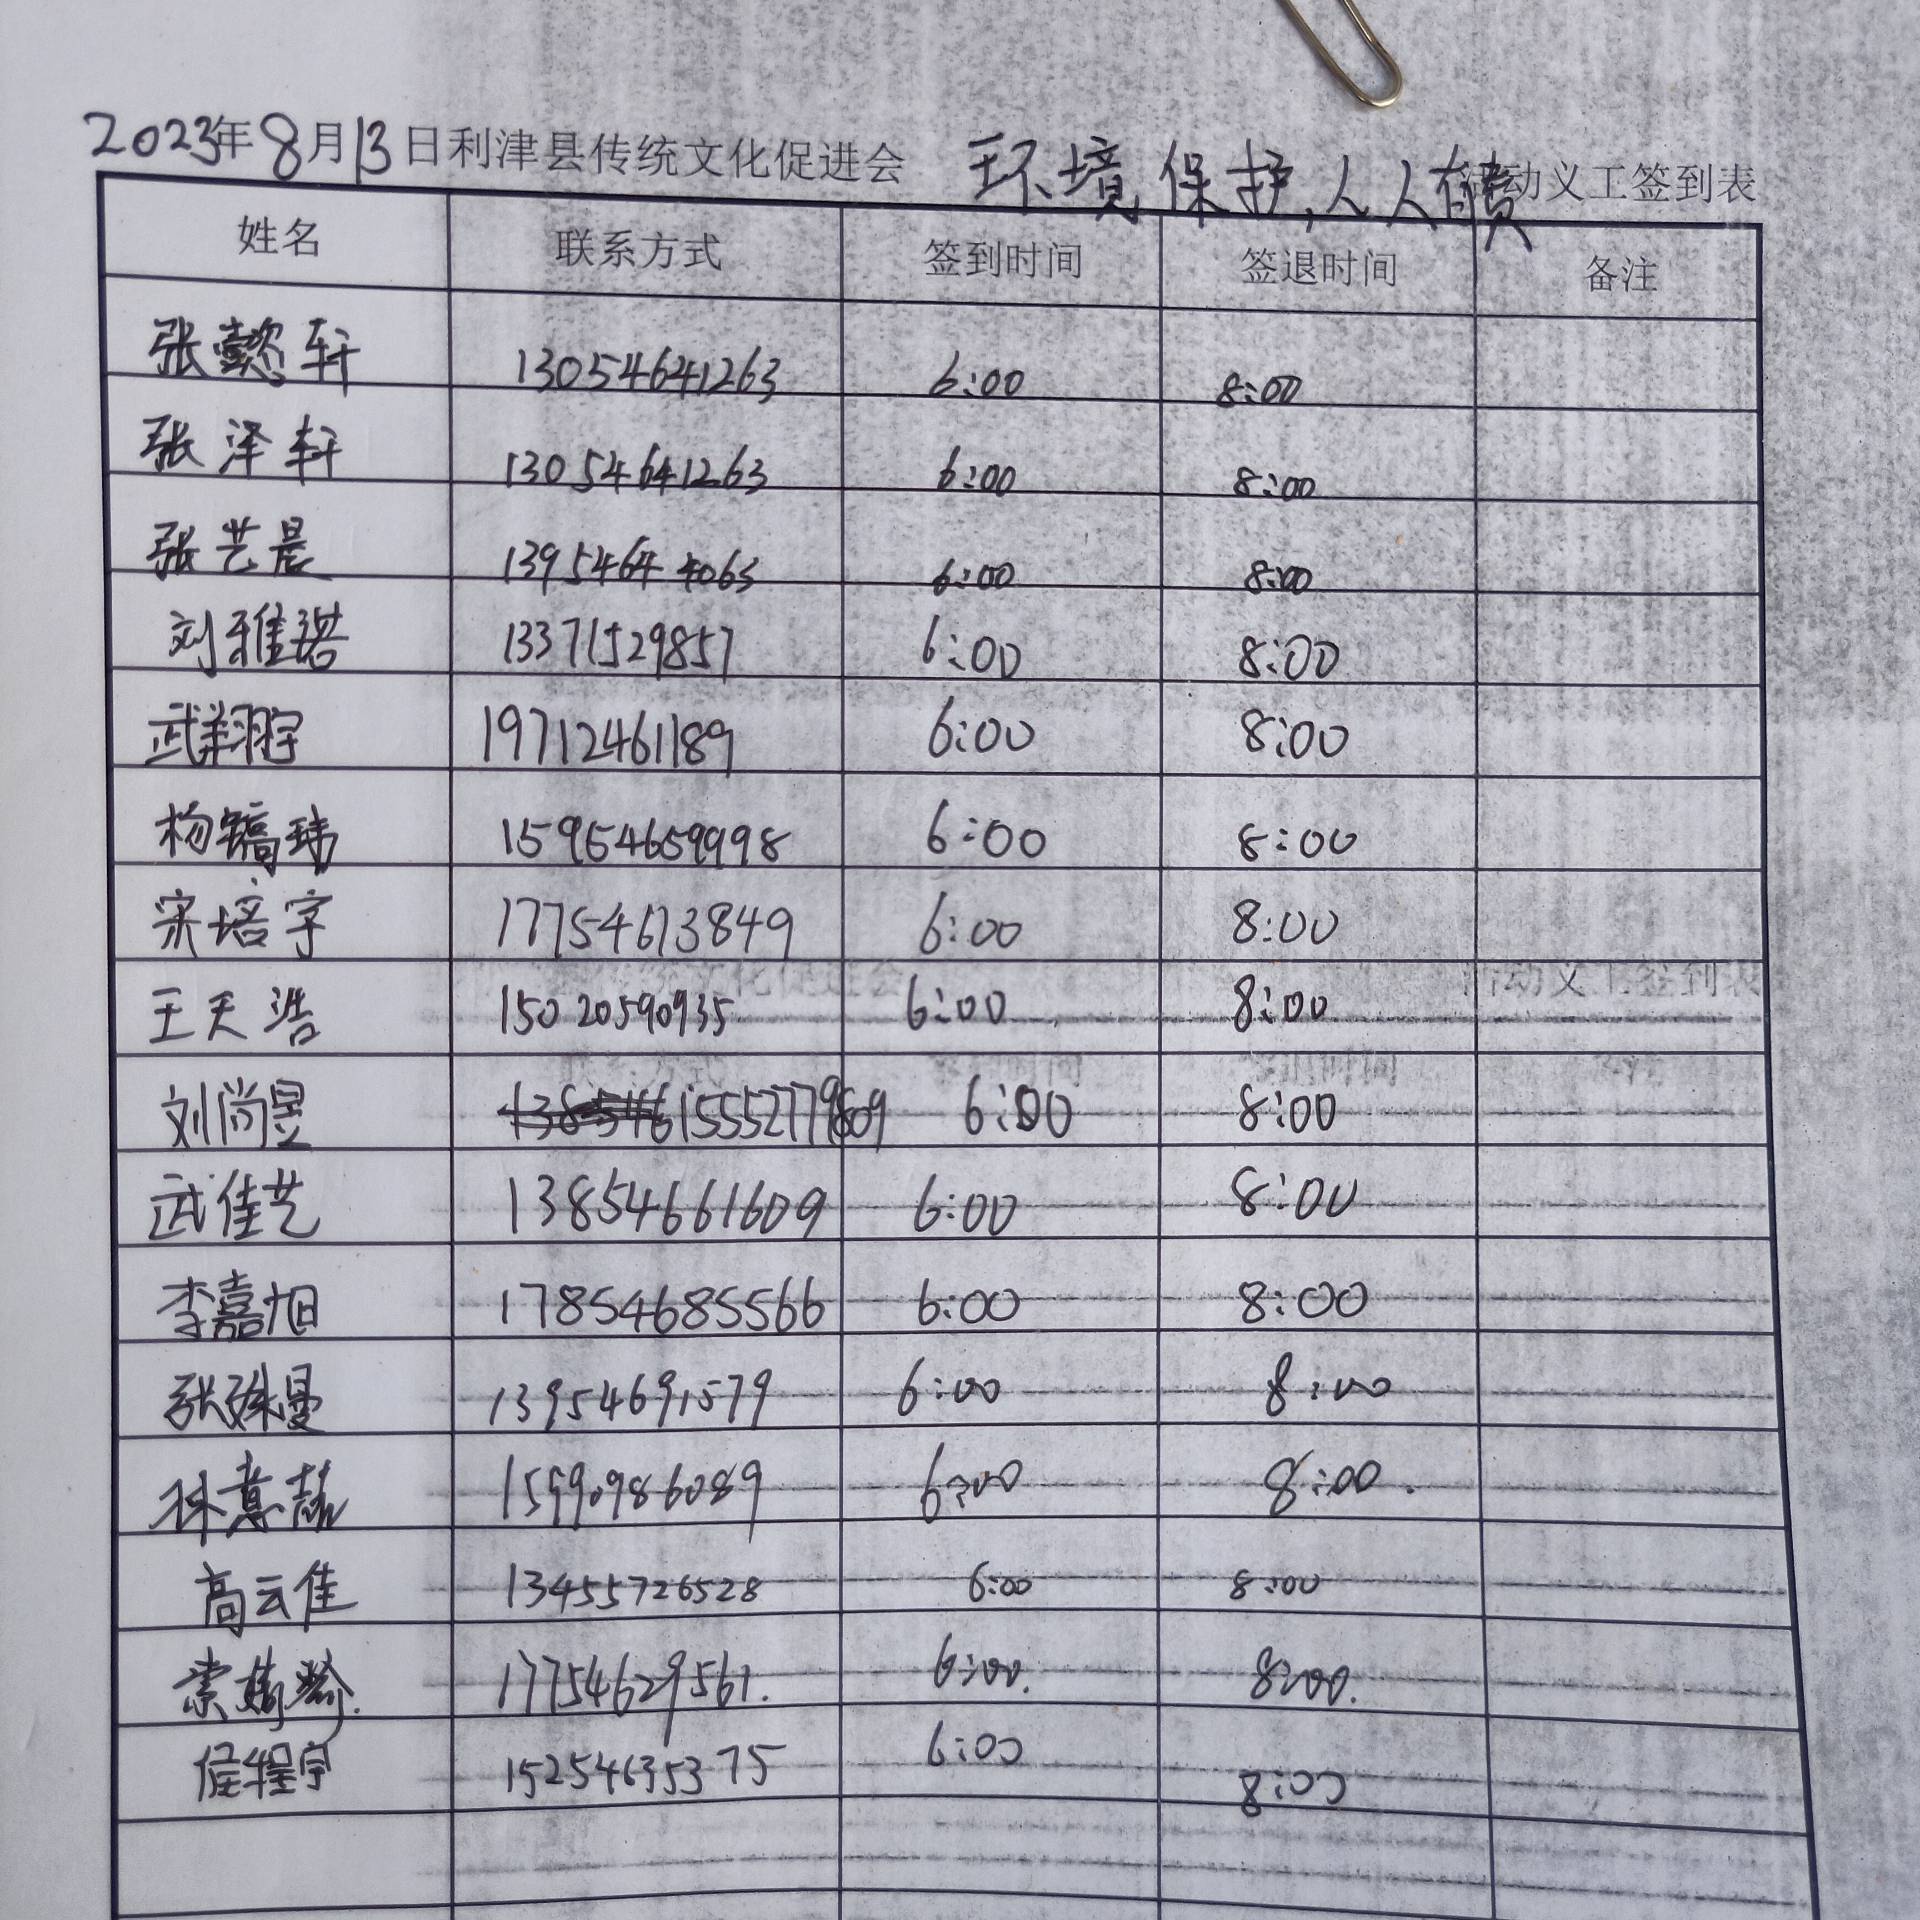 2023年8月13日利津县传统文化促进会 环境保护,人人有责 活动义工签到表
姓名 联系方式 签到时间 签退时间 备注
张懿轩 13054641263 6:00 8:00
张泽轩 13054641263 6:00 8:00
张艺晨 13954644063 6:00 8:00
刘雅诺 13371529857 6:00 8:00
武翔宇 19712461189 6:00 8:00
杨镐玮 15954659998 6:00 8:00
宋培宇 17754613849 6:00 8:00
王天浩 15020590935 6:00 8:00
刘尚昱 15552779809 6:00 8:00
武佳艺 13854661609 6:00 8:00
李嘉旭 17854685566 6:00 8:00
张殊曼 13954691579 6:00 8:00
林意赫 15990986089 6:00 8:00.
高云佳 13455726528 6:00 8:00
17754629561. 6:00. 8:00.
侯程宇 15254635375 6:00 8:00